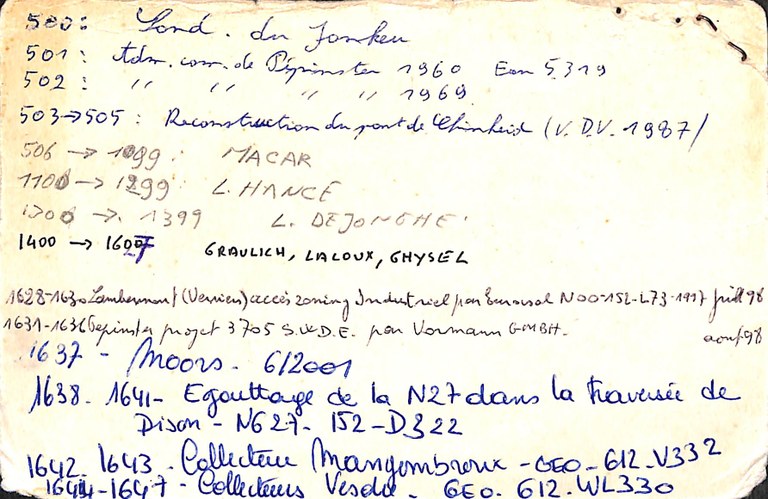 500 : Sond. du Jonkeu
501 : Adm. com. de Pépinster 1960 Eon 5319
502 : " " " " 1969
503→505 : Reconstruction du pont de Chinheid (V.D.V. 1987)
506 → 1099 : MACAR
1100 → 1299 : L. HANCE
1300 → 1399 L. DEJONGHE
1400 → 1627 GRAULICH, LALOUX, GHYSEL
1628-1630 Lambermont (Verviers) accès zoning Industriel par Eurosol N00-152-L73-1997 juill 98
1631-1636 Pepinster projet 3705 S.W.D.E. par Vormann GMBH. aout 98
1637 - Moors - 6/2001
1638 - 1641 - Egouttage de la N27 dans la traversée de
Dison - N627 - 152 - D322
1642 - 1643 - Collecteur Mangombroux - GEO - 612 - V332
1644-1647 - Collecteurs Vesdre - GEO. 612. WL330